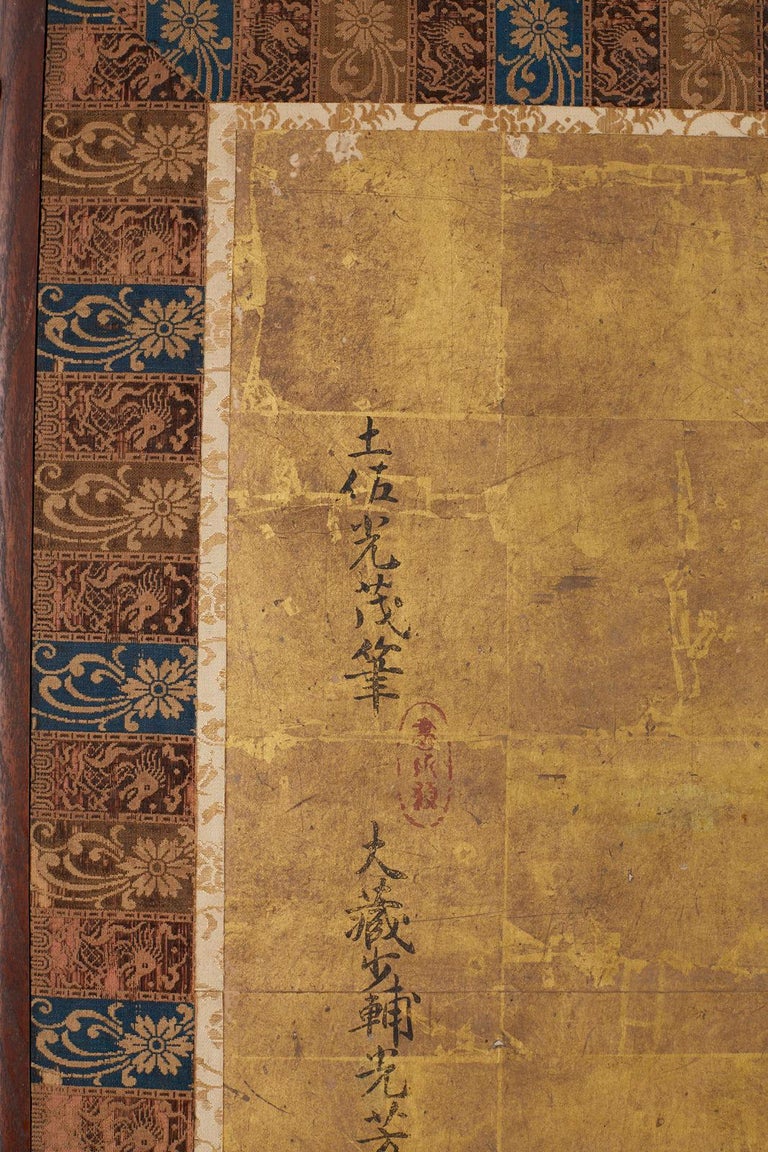 土佐光茂筆
大藏少輔光芳